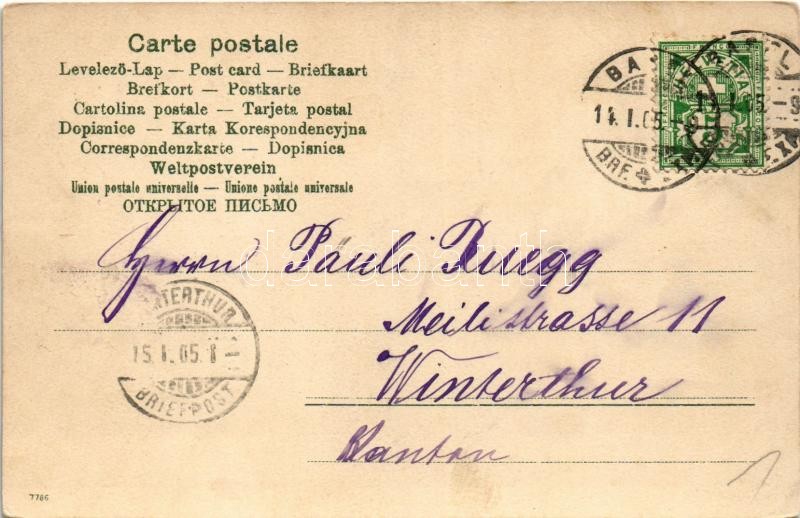 Carte postale
Levelező-Lap — Post card — Briefkaart
Brefkort — Postkarte
Cartolina postale — Tarjeta postal
Dopisnice — Karta Korespondencyjna
Correspondenzkarte — Dopisnica
Weltpostverein
Union postale universelle — Unione postale universale
ОТКРЫТОЕ ПИСЬМО
BRF.
5
Herrn Pauli Ruegg
Meilistrasse 11
Winterthur
Kanton
WINTERTHUR
15. I. 05.
BRIEFPOST
7786
darabanth